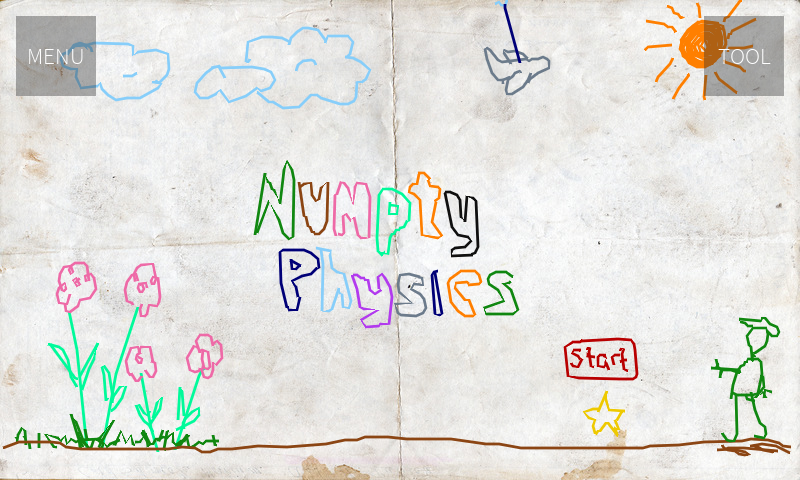 MENU
TOOL
Numpty
Physics
Start